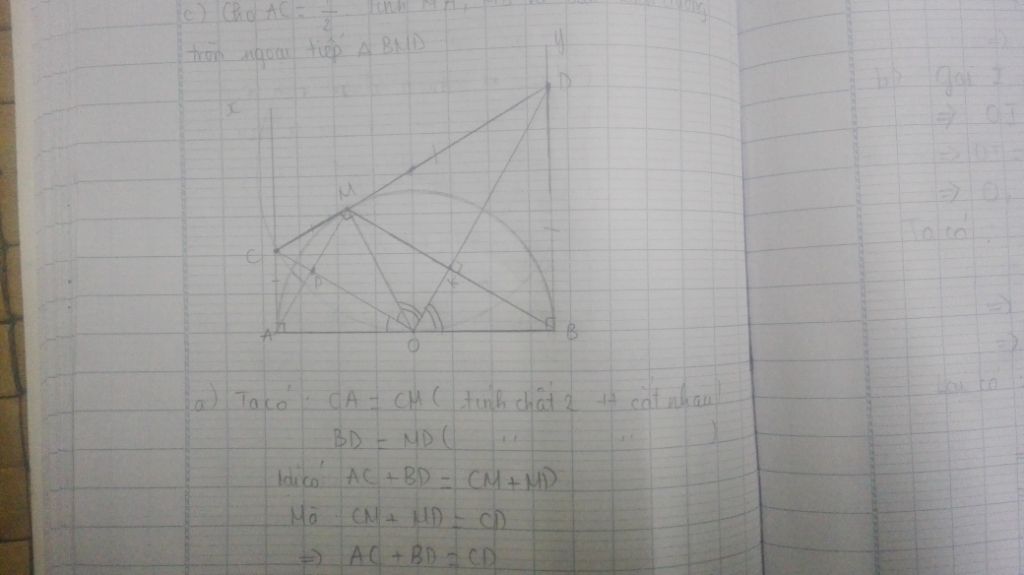 c) Cho AC = R/2. Tính MA, MB
tròn ngoại tiếp Δ BMD
y
D
x
M
C
P
K
A
O
B
a) Ta có: CA = CM ( tính chất 2 tt cắt nhau)
BD = MD ( " " )
Lại có: AC + BD = CM + MD
Mà CM + MD = CD
=> AC + BD = CD
b) Gọi I
=> OI
=> OI =
=> O,
Ta có:
=>
=>
Lại có